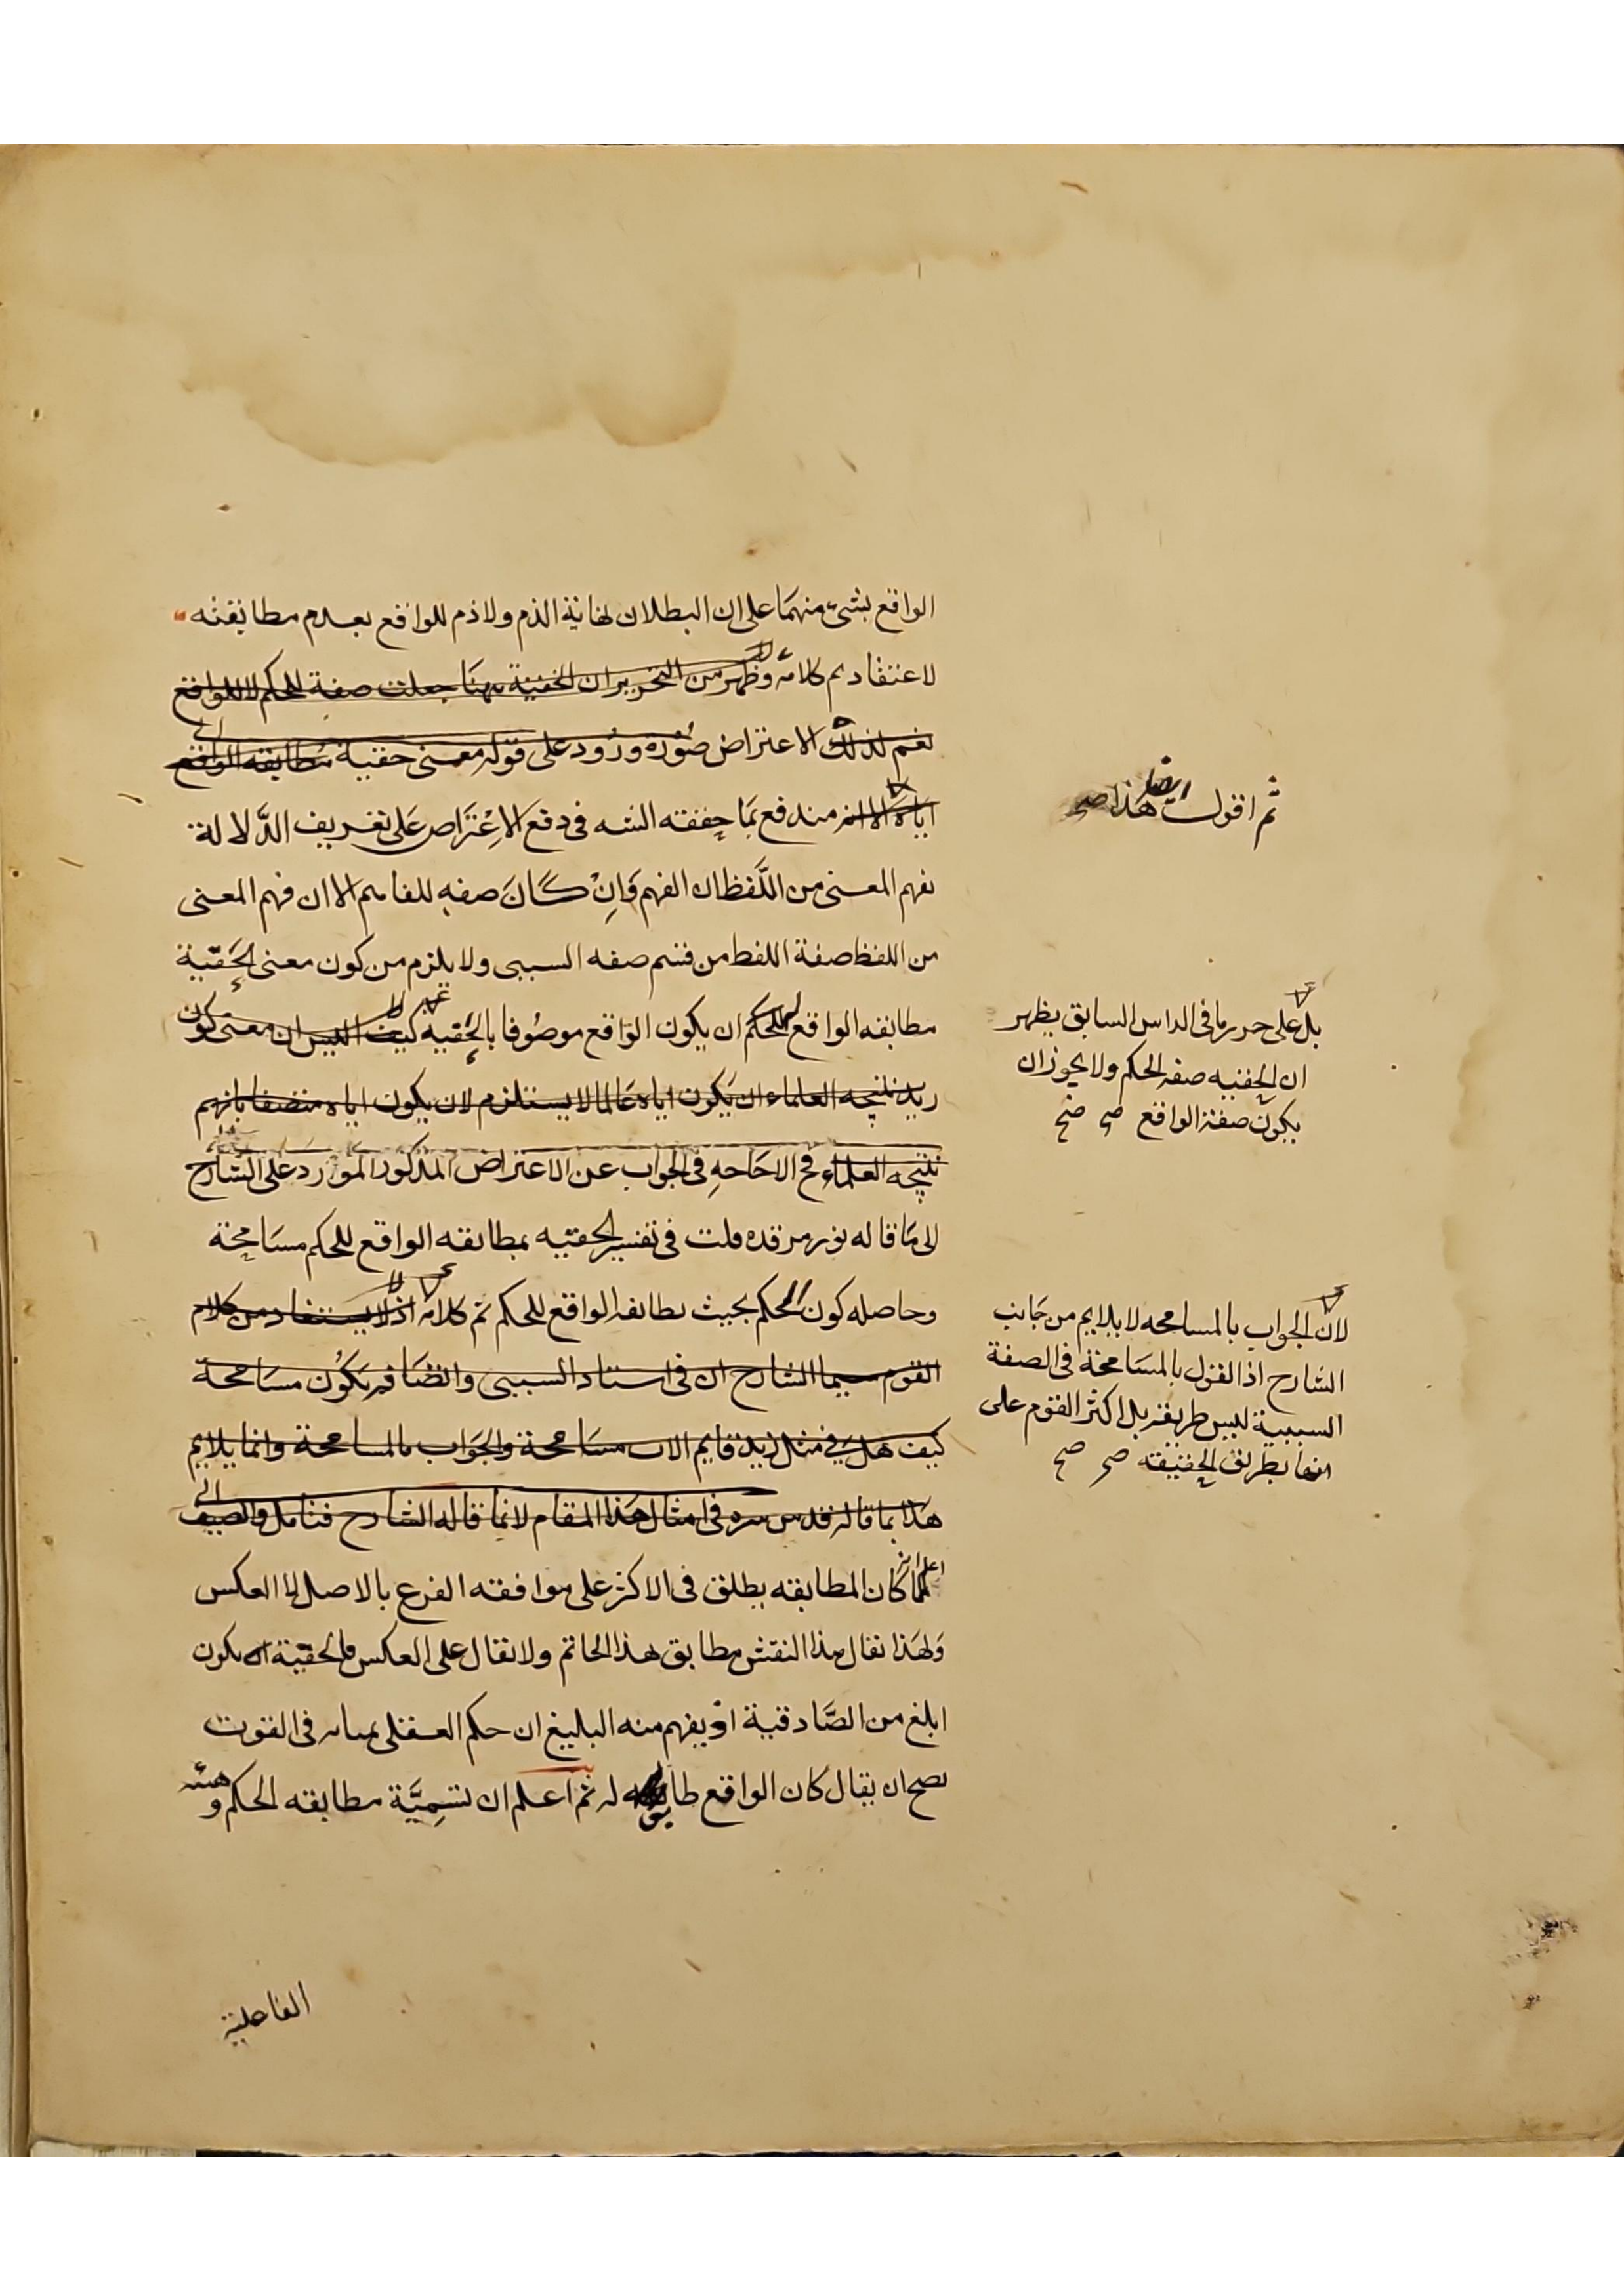 الواقع بشئ منهما على ان البطلان لغاية الذم ولا ذم للواقع بعدم مطابقته
لاعتقادهم كلامه وظهر من التحرير ان الحقية ههنا جعلت صفة للحكم لا للواقع
نعم لذلك الاعتراض صورة ورود على قوله معنى حقية مطابقة الواقع
اياه الا انه مندفع بما حققه الشه فى دفع الاعتراض على تعريف الدلالة
بفهم المعنى من اللفظ ان الفهم وان كان صفه للفاهم الا ان فهم المعنى
من اللفظ صفة اللفظ من قسم صفه السببى ولا يلزم من كون معنى الحقية
مطابقه الواقع للحكم ان يكون الواقع موصوفا بالحقيه كيف اليس ان معنى كون
زيد نتيجه العلماء ان يكون اياه عالما لا يستلزم لان يكون اياه متصفا بانهم
نتيجه العلماء فح لا حاجه فى الجواب عن الاعتراض المذكور المورد على الشارح
الى ما قاله نور مرقده قلت فى تفسير الحقيه بمطابقه الواقع للحكم مسامحة
وحاصله كون الحكم بحيث يطابقه الواقع للحكم تم كلامه اذ لا يستفاد من كلام
القوم سيما الشارح ان فى اسناد السببى واتصافه يكون مسامحة
كيف هل فى مثل زيد قايم الاب مسامحة والجواب بالمسامحة وانما يلايم
هذا بما قاله قدس سره فى امثال هذا المقام لا بما قاله الشارح فتامل
اعلم انه كان المطابقه يطلق فى الاكثر على موافقته الفرع بالاصل لا العكس
ولهذا يقال هذا النقش مطابق هذا الخاتم ولا يقال على العكس فالحقية ان يكون
ابلغ من الصادقية او يفهم منه البليغ ان حكم العقلى فى القوت
يصح ان يقال كان الواقع له ثم اعلم ان تسمية مطابقه الحكم و
ثم اقول ايضا هذا صح
بل على حرر ما فى الداس السابق يظهر
ان الحقيه صفه الحكم ولا يجوز ان
يكون صفة الواقع صح صح
لان الجواب بالمسامحه لا يلايم من جانب
الشارح اذ القول بالمسامحة فى الصفة
السببية ليس طريقه بل اكثر القوم على
انها بطريق الحقيقه صح صح